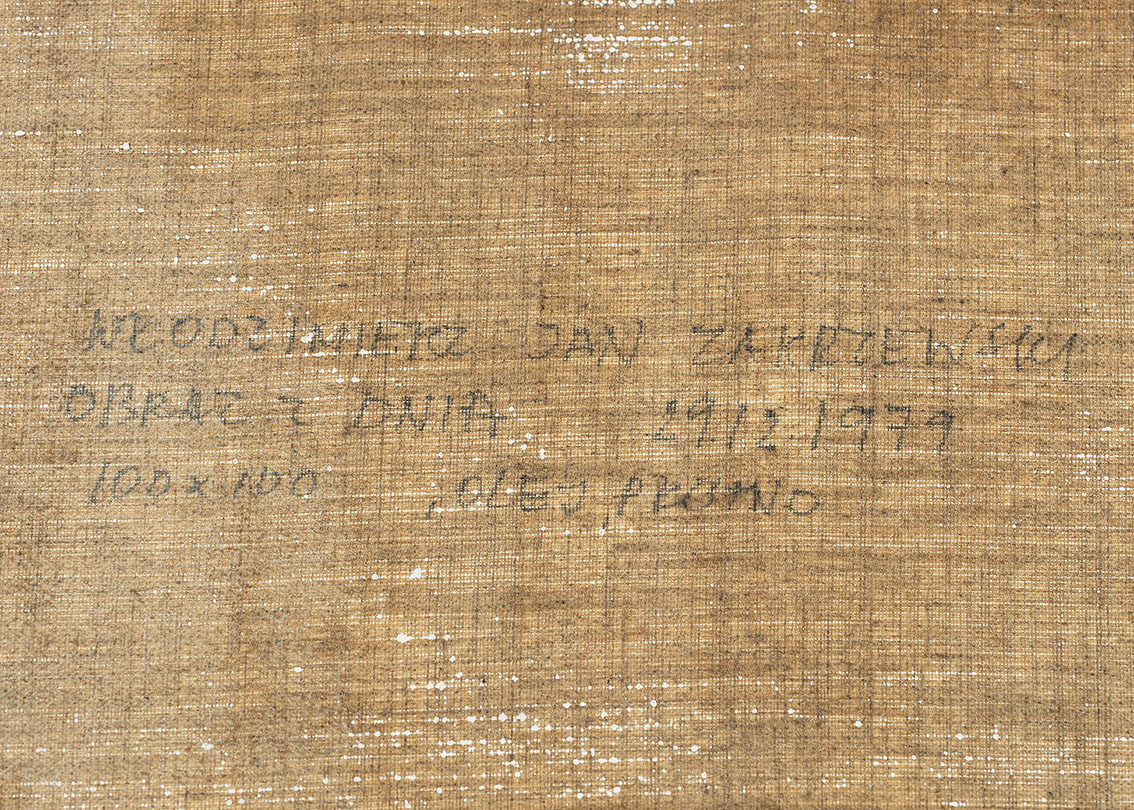 WŁODZIMIERZ JAN ZAKRZEWSKI
OBRAZ Z DNIA 2912.1979
100 x 100 , OLEJ, PŁÓTNO